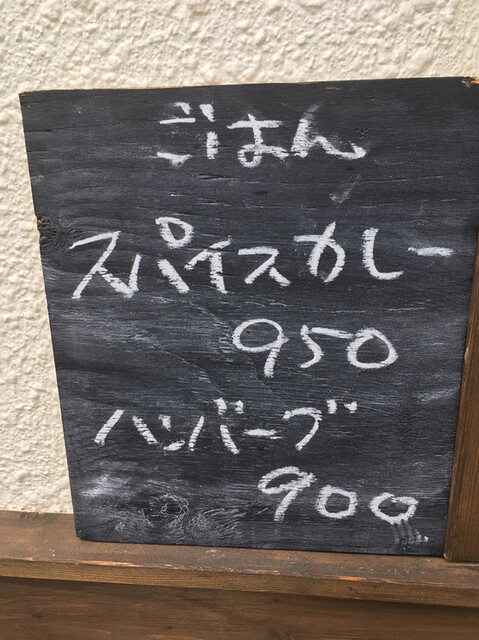 ごはん
スパイスカレー
950
ハンバーグ
900